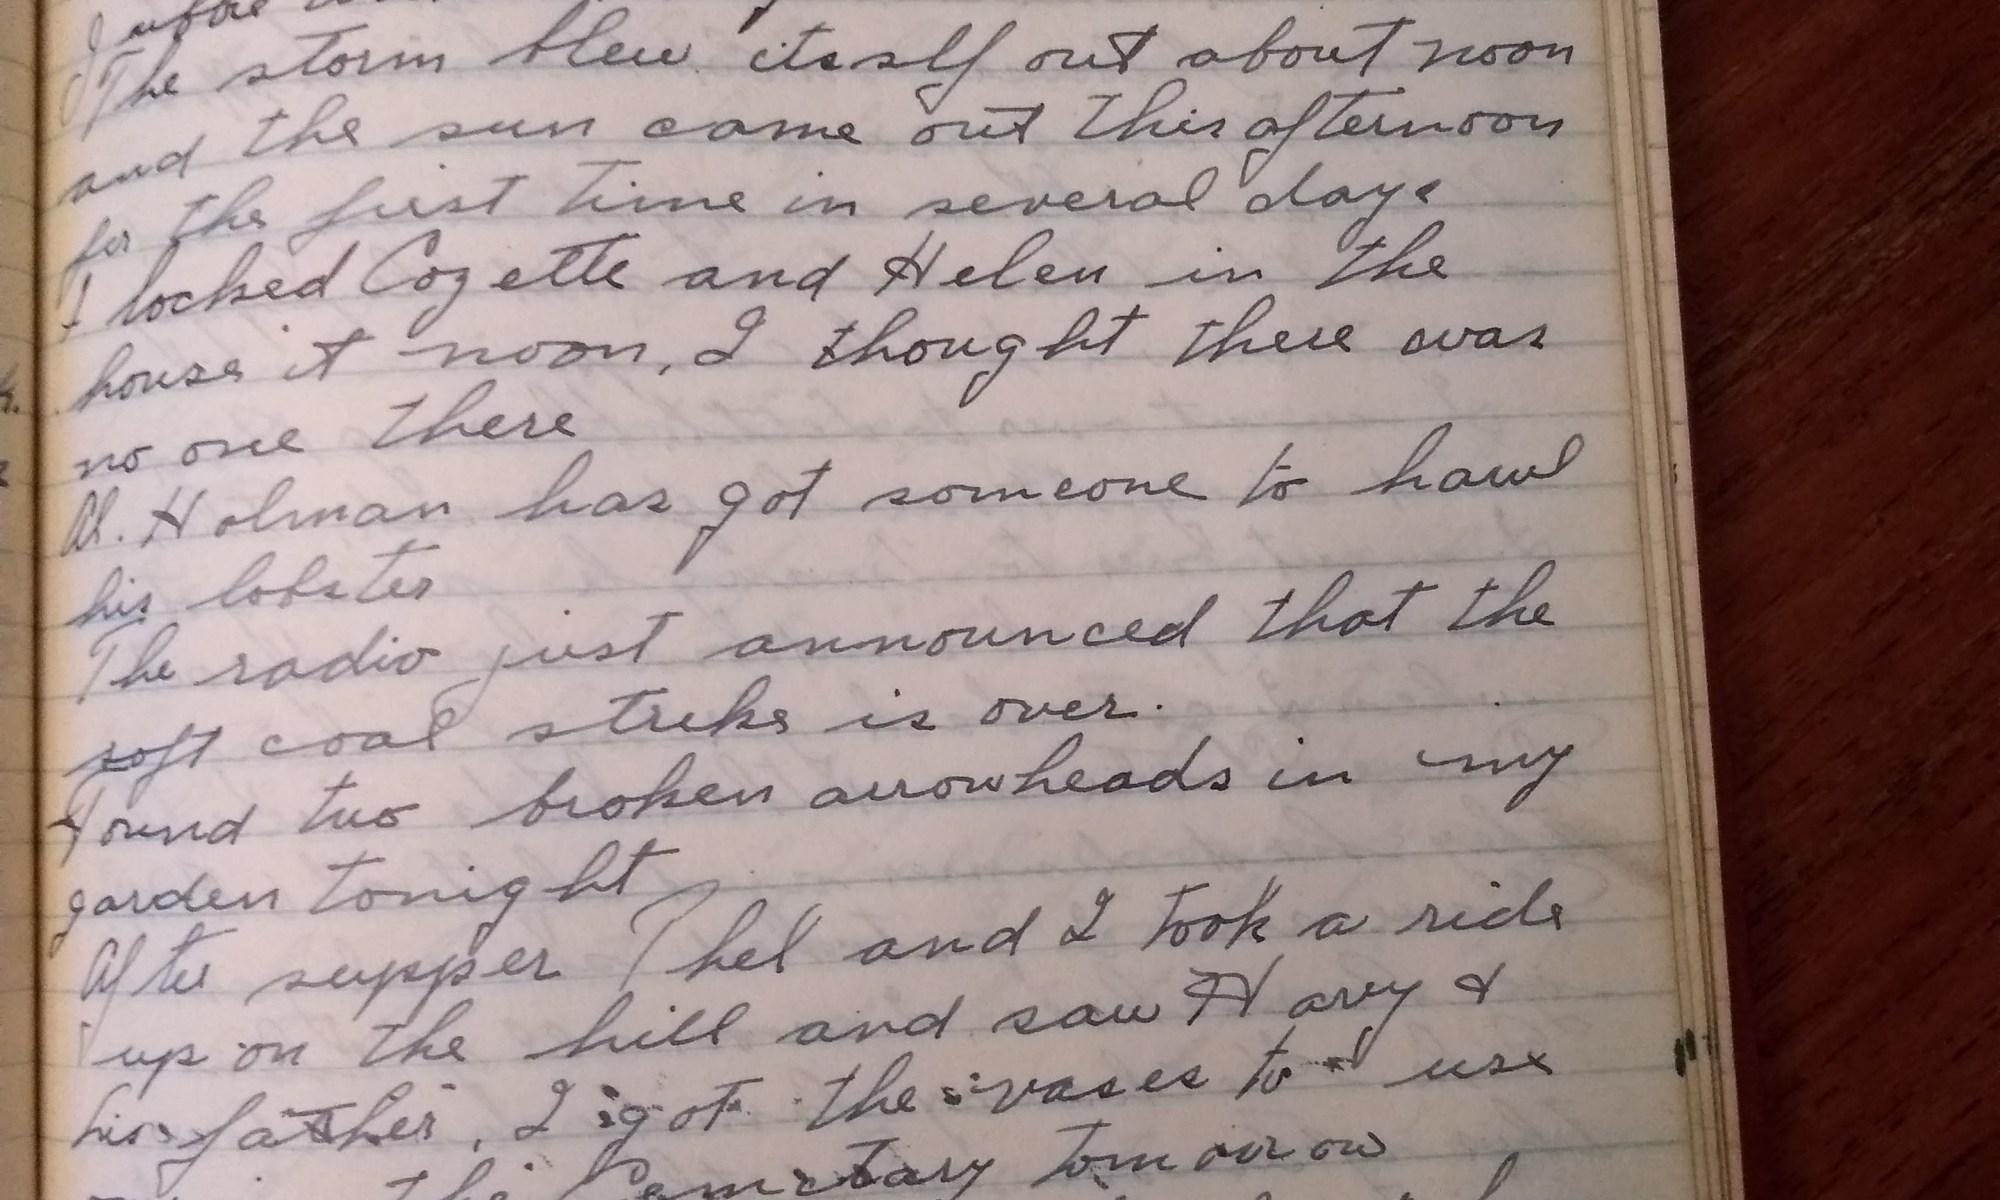 The storm blew itself out about noon
and the sun came out this afternoon
for the first time in several days
I locked Cozette and Helen in the
house it noon, I thought there was
no one there
Al. Holman has got someone to hawl
his lobster
The radio just announced that the
soft coal strike is over.
Found two broken arrowheads in my
garden tonight
After supper Thel and I took a ride
up on the hill and saw Havy &
his father, I got the vases to use
the Cemetary tomorrow